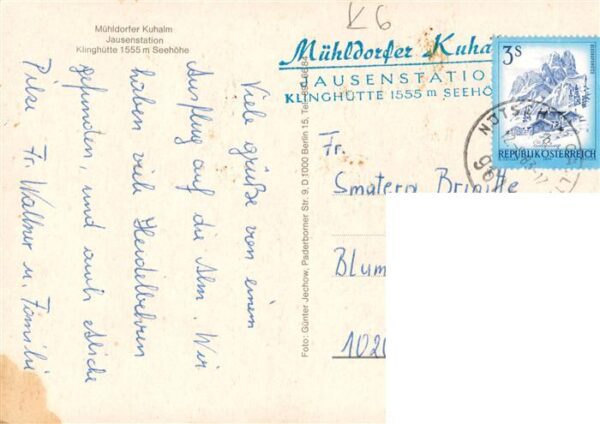 Mühldorfer Kuhalm
Jausenstation
Klinghütte 1555 m Seehöhe
Viele grüße von einem
Ausflug auf die Alm. Wir
haben viele Heidelbeeren
gefunden, und auch etliche
Pilze Fr. Wallner u. Familie
Foto: Günter Jechow, Paderborner Str. 9, D 1000 Berlin 15, Tel.
K6
Mühldorfer Kuha
JAUSENSTATIO
KLINGHÜTTE 1555 m SEEHÖ
3 S
REPUBLIK ÖSTERREICH
NÖTSCH
96
Fr.
Brigitte
Blum
1020